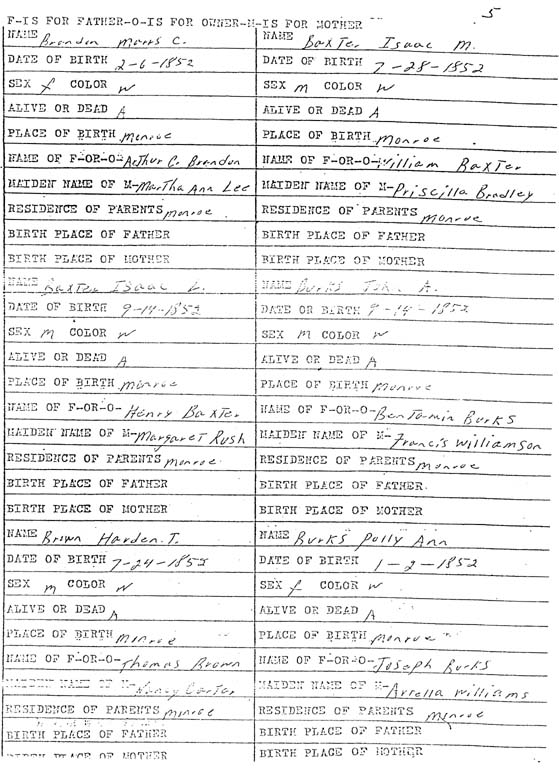 5
F-IS FOR FATHER-O-IS FOR OWNER-M-IS FOR MOTHER
NAME Brandon Marrs C.
DATE OF BIRTH 2-6-1852
SEX f COLOR w
ALIVE OR DEAD A
PLACE OF BIRTH Monroe
NAME OF F-OR-O- Arthur C. Brandon
MAIDEN NAME OF M- Martha Ann Lee
RESIDENCE OF PARENTS Monroe
BIRTH PLACE OF FATHER
BIRTH PLACE OF MOTHER
NAME Baxter Isaac L.
DATE OF BIRTH 9-14-1852
SEX M COLOR w
ALIVE OR DEAD A
PLACE OF BIRTH Monroe
NAME OF F-OR-O- Henry Baxter
MAIDEN NAME OF M- Margaret Rush
RESIDENCE OF PARENTS Monroe
BIRTH PLACE OF FATHER
BIRTH PLACE OF MOTHER
NAME Brown Harden T.
DATE OF BIRTH 7-24-1852
SEX m COLOR w
ALIVE OR DEAD A
PLACE OF BIRTH Monroe
NAME OF F-OR-O- Thomas Brown
MAIDEN NAME OF M- Nancy Carter
RESIDENCE OF PARENTS Monroe
BIRTH PLACE OF FATHER
BIRTH PLACE OF MOTHER
NAME Baxter Isaac M.
DATE OF BIRTH 7-28-1852
SEX m COLOR w
ALIVE OR DEAD A
PLACE OF BIRTH Monroe
NAME OF F-OR-O- William Baxter
MAIDEN NAME OF M- Priscilla Bradley
RESIDENCE OF PARENTS Monroe
BIRTH PLACE OF FATHER
BIRTH PLACE OF MOTHER
NAME Burks John A.
DATE OR BIRTH 9-14-1852
SEX M COLOR w
ALIVE OR DEAD A
PLACE OF BIRTH Monroe
NAME OF F-OR-O- Benjamin Burks
MAIDEN NAME OF M- Francis Williamson
RESIDENCE OF PARENTS Monroe
BIRTH PLACE OF FATHER
BIRTH PLACE OF MOTHER
NAME Burks Polly Ann
DATE OF BIRTH 1-2-1852
SEX f COLOR w
ALIVE OR DEAD A
PLACE OF BIRTH Monroe
NAME OF F-OR-O- Joseph Burks
MAIDEN NAME OF M- Arrella Williams
RESIDENCE OF PARENTS Monroe
BIRTH PLACE OF FATHER
BIRTH PLACE OF MOTHER